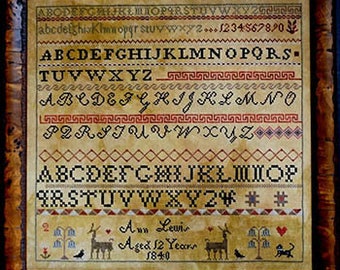 abcdefghijklmnopqrstuvwxyz
abcdefghijklmnopqrstuvwxyz 1234567890
ABCDEFGHIJKLMNOPQRS
TUVWXYZ
ABCDEFGHIJKLMNO
PQRSTUVWXYZ
ABCDEFGHIJKLMNOP
QRSTUVWXYZ
Ann Lewis
Aged 12 Years
1840